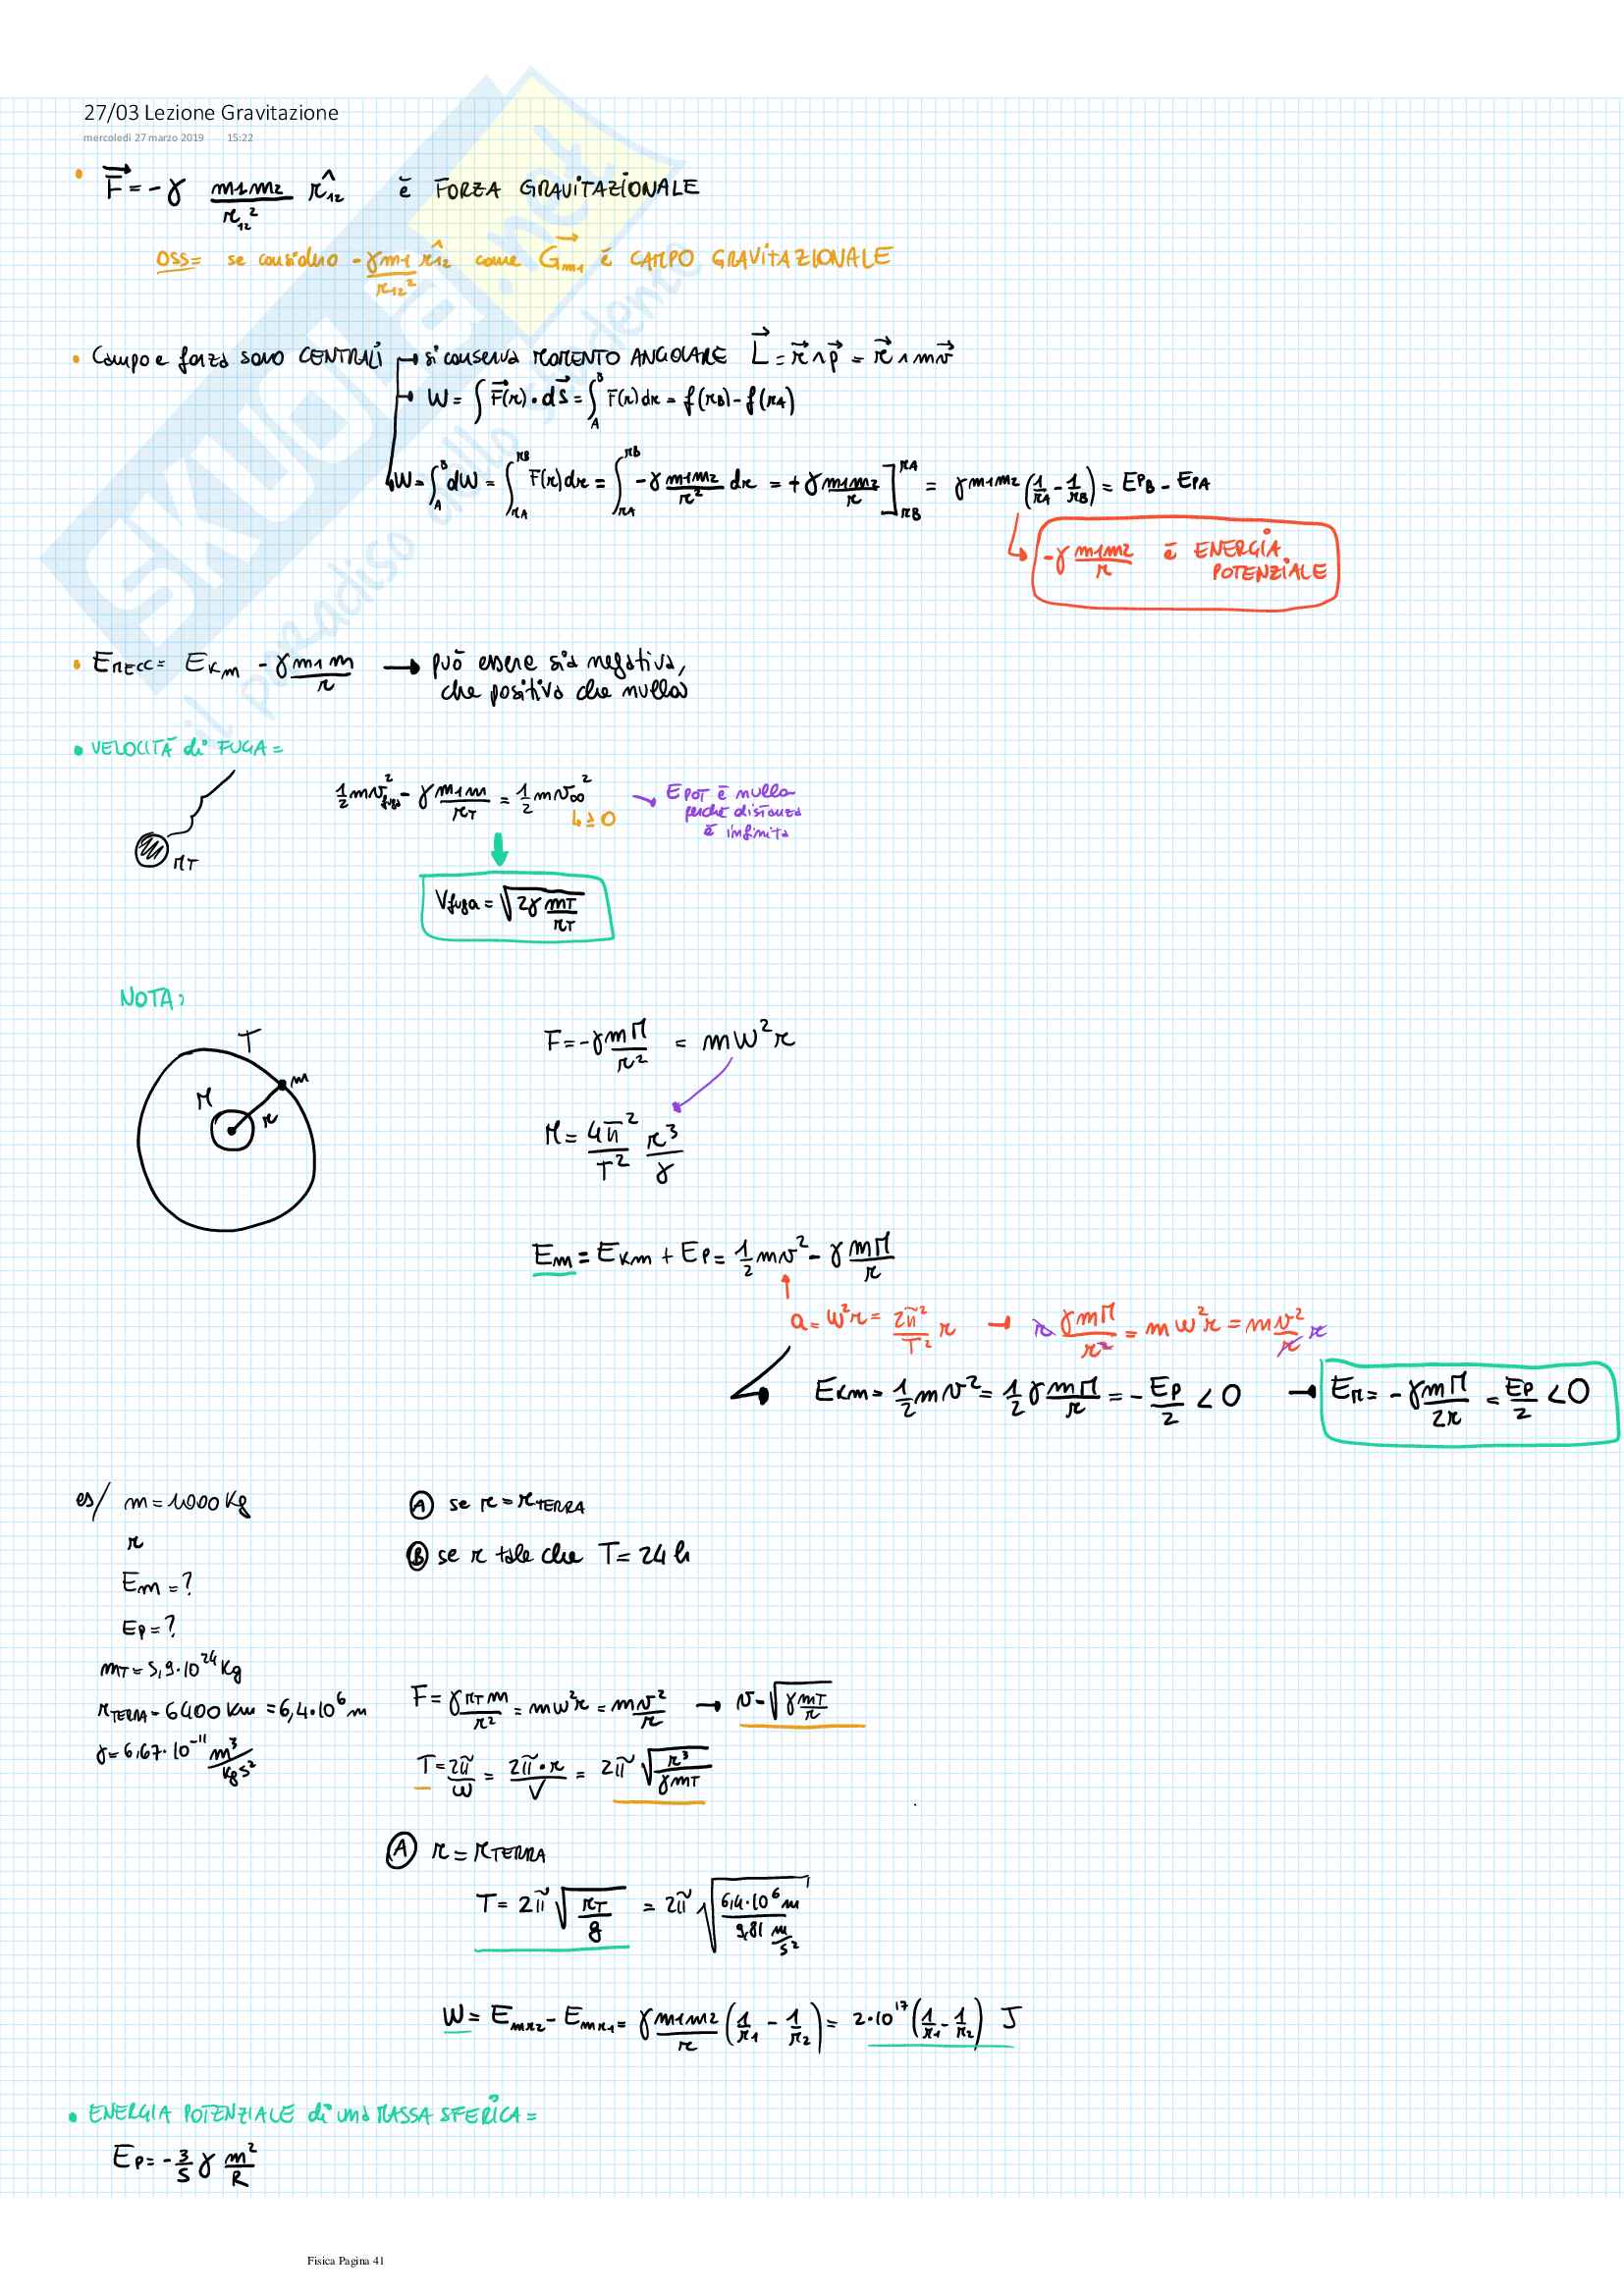 27/03 Lezione Gravitazione
mercoledì 27 marzo 2019 15:22
• F⃗ = -γ m1m2/r12² r̂12 è FORZA GRAVITAZIONALE
OSS= se considero -γm1/r12² r̂12 come G⃗m1 è CAMPO GRAVITAZIONALE
• Campo e forza sono CENTRALI → si conserva MOMENTO ANGOLARE L⃗ = r⃗ ∧ p⃗ = r⃗ ∧ mv⃗
→ W = ∫ F⃗(r) • dS⃗ = ∫_A^B F(r)dr = f(rB) - f(rA)
W = ∫_A^B dW = ∫_rA^rB F(r)dr = ∫_rA^rB -γ m1m2/r² dr = +γ m1m2/r ]_rB^rA = γm1m2 (1/rA - 1/rB) = EPB - EPA
→ -γ m1m2/r è ENERGIA
POTENZIALE
• EMECC = EKm - γ m1m/r → può essere sia negativa,
che positiva che nulla
• VELOCITÀ di FUGA =
1/2 mv²fuga - γ m1m/rT = 1/2 mv∞² → EPOT è nulla
perché distanza
è infinita
↳ ≥ 0
MT
Vfuga = √(2γ mT/rT)
NOTA:
T
m
M
r
F = -γ mM/r² = mW²r
M = 4π²/T² r³/γ
Em = EKm + EP = 1/2 mv² - γ mM/r
a = W²r = 2π²/T² r → r γmM/r² = mW²r = m v²/r r
EKm = 1/2 mv² = 1/2 γ mM/r = - EP/2 < 0 → EM = -γ mM/2r = EP/2 < 0
es/ m = 1000 Kg
r
Em = ?
EP = ?
mT = 5,9·10²⁴ Kg
rTERRA = 6400 Km = 6,4·10⁶ m
γ = 6,67·10⁻¹¹ m³/kg s²
Ⓐ se r = rTERRA
Ⓑ se r tale che T = 24 h
F = γ MTm/r² = mW²r = m v²/r → v = √(γ mT/r)
T = 2π/W = 2π•r/V = 2π √(r³/γmT)
Ⓐ r = rTERRA
T = 2π √(rT/g) = 2π √(6,4·10⁶ m / 9,81 m/s²)
W = Emr2 - Emr1 = γ m1m2/r (1/r1 - 1/r2) = 2·10¹⁷ (1/r1 - 1/r2) J
• ENERGIA POTENZIALE di una MASSA SFERICA =
EP = -3/5 γ m²/R
Fisica Pagina 41
SKUOLA.net
il paradiso dello studente